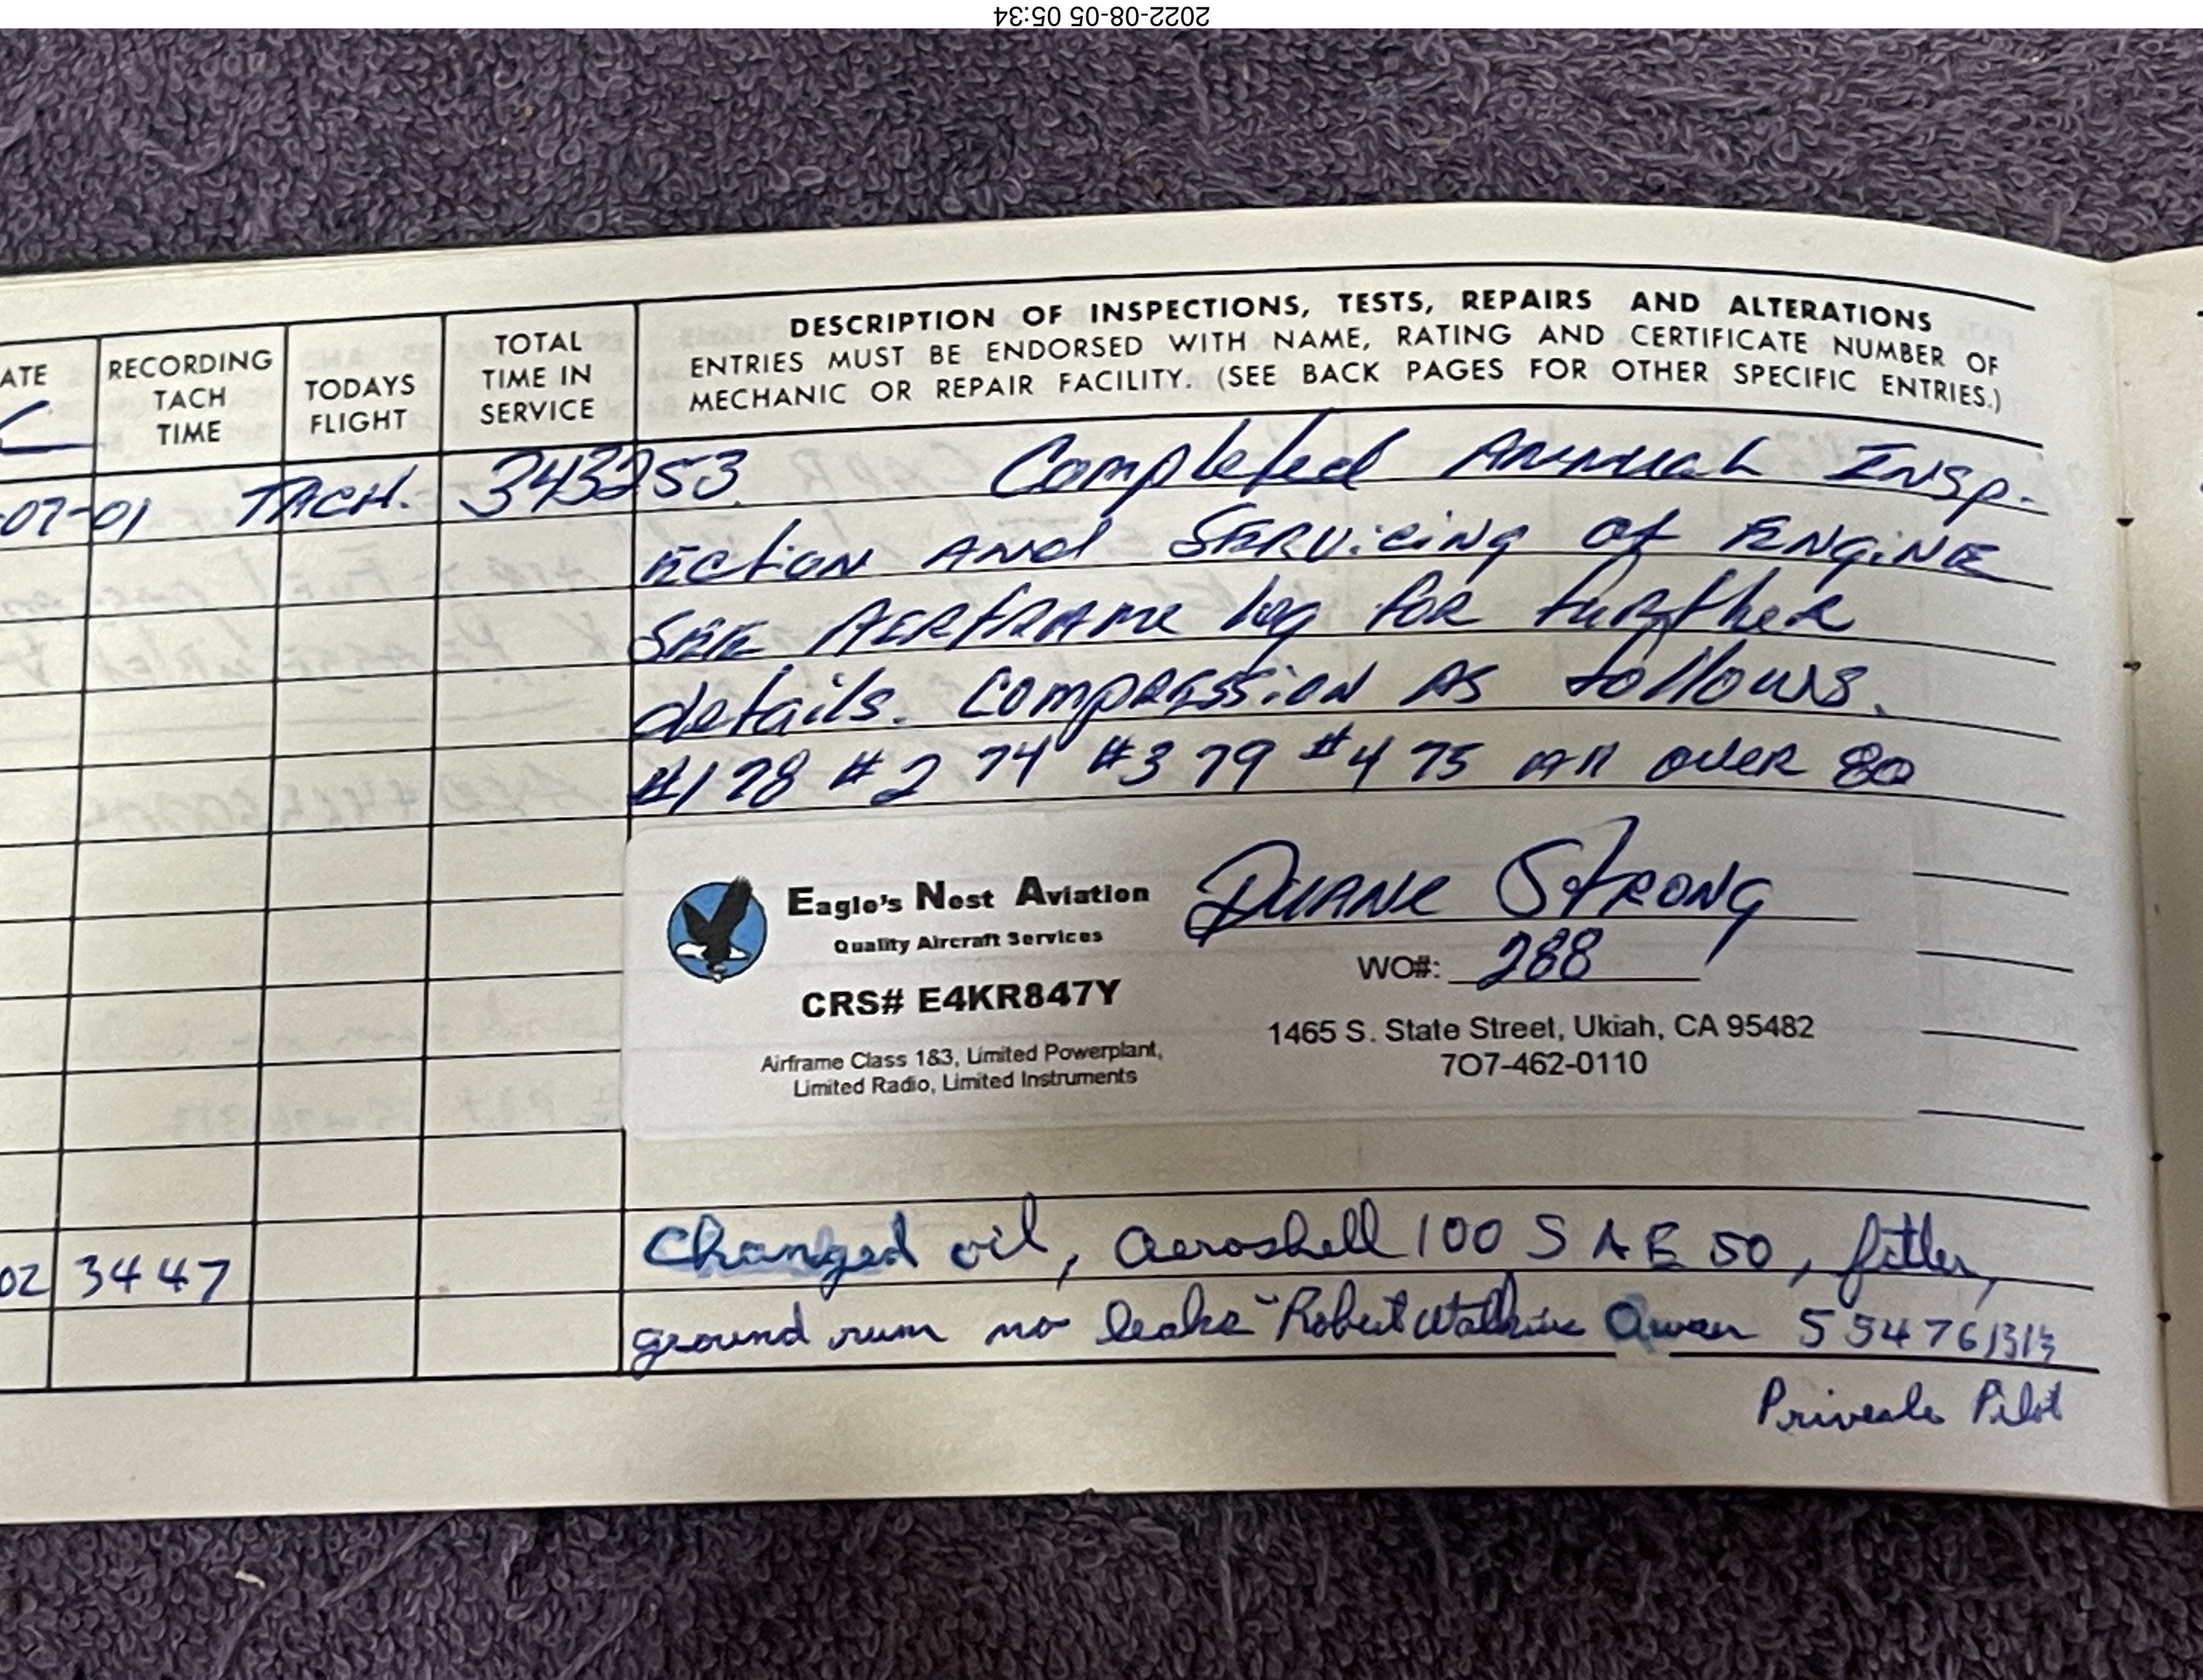 2022-08-05 05:34
DESCRIPTION OF INSPECTIONS, TESTS, REPAIRS AND ALTERATIONS
ENTRIES MUST BE ENDORSED WITH NAME, RATING AND CERTIFICATE NUMBER OF
MECHANIC OR REPAIR FACILITY. (SEE BACK PAGES FOR OTHER SPECIFIC ENTRIES.)
ATE
RECORDING
TACH
TIME
TODAYS
FLIGHT
TOTAL
TIME IN
SERVICE
-07-01 TACH. 343253 Completed Annual Insp-
ection and Servicing of Engine
See Airframe log for further
details. Compression as follows.
#1 78 #2 74 #3 79 #4 75 all over 80
Eagle's Nest Aviation
Quality Aircraft Services
CRS# E4KR847Y
Airframe Class 1&3, Limited Powerplant,
Limited Radio, Limited Instruments
Duane Strong
WO#: 288
1465 S. State Street, Ukiah, CA 95482
707-462-0110
02 3447 Changed oil, Aeroshell 100 SAE 50, filter,
ground run no leaks Robert Watkins Owner
Private Pilot